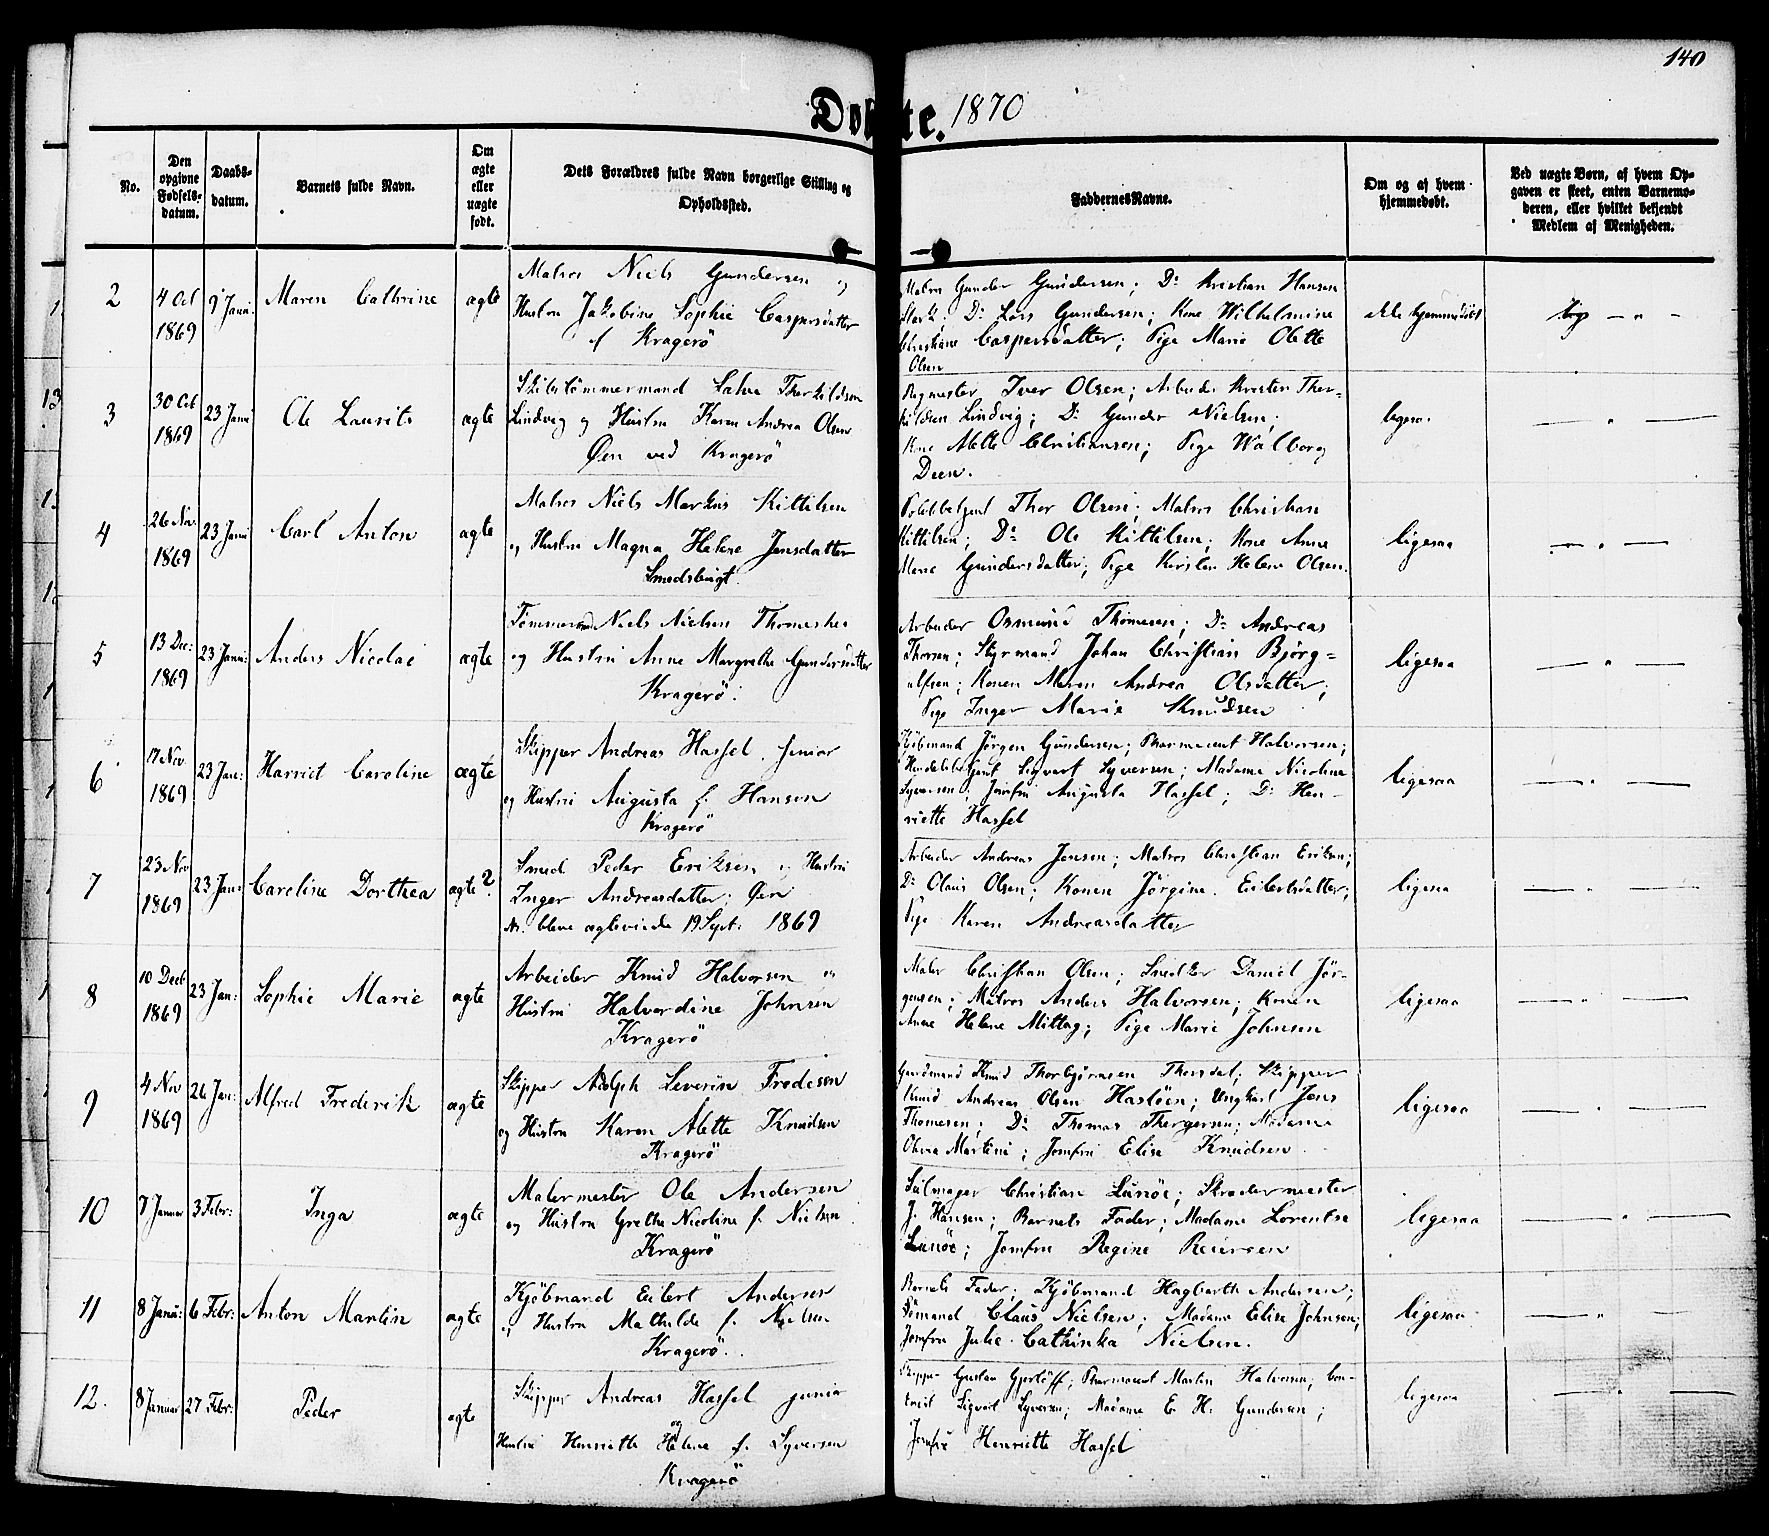 140
Døbte. 1870
No.
Den opgivne Fødsels-datum.
Daabs-datum.
Barnets fulde Navn.
Om ægte eller uægte født.
Dets Forældres fulde Navn borgerlige Stilling og Opholdssted.
Faddernes Navne.
Om og af hvem hjemmedøbt.
Ved uægte Børn, af hvem Op-gaven er skeet, enten Barnemo-deren, eller hvilket bekjendt Medlem af Menigheden.
2
4 Oct 1869
9 Janu:
Maren Cathrine
ægte
Matros Niels Gundersen og
Hustru Jakobine Sophie Caspersdatter
af Kragerö
Matros Gunder Gundersen; Do Kristian Hansen
; Do Lars Gundersen; Kone Wilhelmine
Christiane Caspersdatter; Pige Marie Olette
Olsen
ikke hjemmedøbt
3
30 Oct 1869
23 Janu
Ole Laurits
ægte
Skibstömmermand Therkildsen
Lindvig og Hustru Karen Andrea Olsen
Øen ved Kragerö
Iver Olsen; Arbeider Kresten Ther-
kildsen Lindvig; Do Gunder Nielsen;
Kone Mette Christiansen; Pige Walborg
Deen.
ligesaa
4
26 Nov. 1869
23 Janu
Carl Anton
ægte
Matros Niels Markus Kittilsen
og Hustru Magna Helene Jensdatter
Smedsbugt.
Politibetjent Thor Olsen; Matros Christian
Kittilsen; Do Ole Kittilsen; Kone Anne
Marie Gundersdatter; Pige Kirsten Helene Olsen.
ligesaa
5
13 Dec: 1869
23 Janu:
Anders Nicolai
ægte
Tömmermand Niels Nielsen
og Hustru Anne Margrethe Gundersdatter
Kragerö.
Arbeider Osmund Thomesen; Do Andreas
Thorsen; Styrmand Johan Christian Björg-
ulfsen; Konen Maren Andrea Olsdatter;
Pige Inger Marie Knudsen
ligesaa
6
17 Nov. 1869
23 Jan:
Harriet Caroline
ægte
Skipper Andreas Hassel senior
og Hustru Augusta f. Hansen
Kragerö
Kjöbmand Jörgen Gundersen; Pharmaceut Halvorsen;
Handelsbetjent Sigvart Syversen; Madame Nicoline
Syversen; Jomfru Augusta Hassel; Do Hen-
riette Hassel
ligesaa
7
23 Nov 1869
23 Jan:
Caroline Dorthea
ægte?
Smed Peder Eriksen og Hustru
Inger Andreasdatter; Øen
bleve ægteviede 19 Sept: 1869
Arbeider Andreas Jensen; Matros Christian Eriksen;
Do Olaus Olsen; Konen Jörgine Eilertsdatter;
Pige Karen Andreasdatter
ligesaa
8
10 Decb 1869
23 Jan:
Sophie Marie
ægte
Arbeider Knud Halvorsen og
Hustru Halvordine Johnsen
Kragerö
Maler Christian Olsen; Snedker Daniel Jör-
gensen; Matros Anders Halvorsen; Konen
Anne Helene Mittag; Pige Marie Johnsen
ligesaa
9
4 Nov 1869
26 Jan:
Alfred Frederik
ægte
Skipper Adolph Severin Fredesen
og Hustru Karen Alette Knudsen
Kragerö
Gaardmand Knud Thorbjörnsen Thorsdal; Skipper
Knud Andreas Olsen Haslöen; Ungkarl Jens
Thomesen; Do Thomas Thorgersen; Madame
Olava Martini; Jomfru Elise Knudsen
ligesaa
10
7 Januar
3 Febr:
Inga
ægte
Malermester Ole Andersen
og Hustru Grethe Nicoline f. Nielsen
Kragerö
Seilmager Christian Lunöe; Skrædermester
J. Hansen; Barnets Fader; Madame Lorentse
Lunöe; Jomfru Regine Reiersen
ligesaa
11
8 Janu:
6 Febr:
Anton Martin
ægte
Kjöbmand Eilert Andersen
og Hustru Mathilde f. Nielsen
Kragerö.
Barnets Fader; Kjöbmand Hagbarth Andersen;
Sömand Claus Nielsen; Madame Elise Johnsen;
Jomfru Julie Cathinka Nielsen.
ligesaa
12.
8 Januar
27 Febr:
Peder
ægte
Skipper Andreas Hassel junior
og
Hustru Henriette Helene f. Syversen
Kragerö
Skipper Gustav Gjerlöff; Pharmaceut Martin Halvorsen;
Sigvart Syversen; Madame E. H. Gundersen;
Jomfru Henriette Hassel
ligesaa